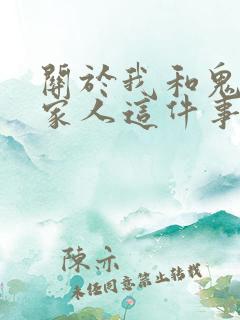 關於我和鬼
家人這件事
陳示
未經同意禁止轉載